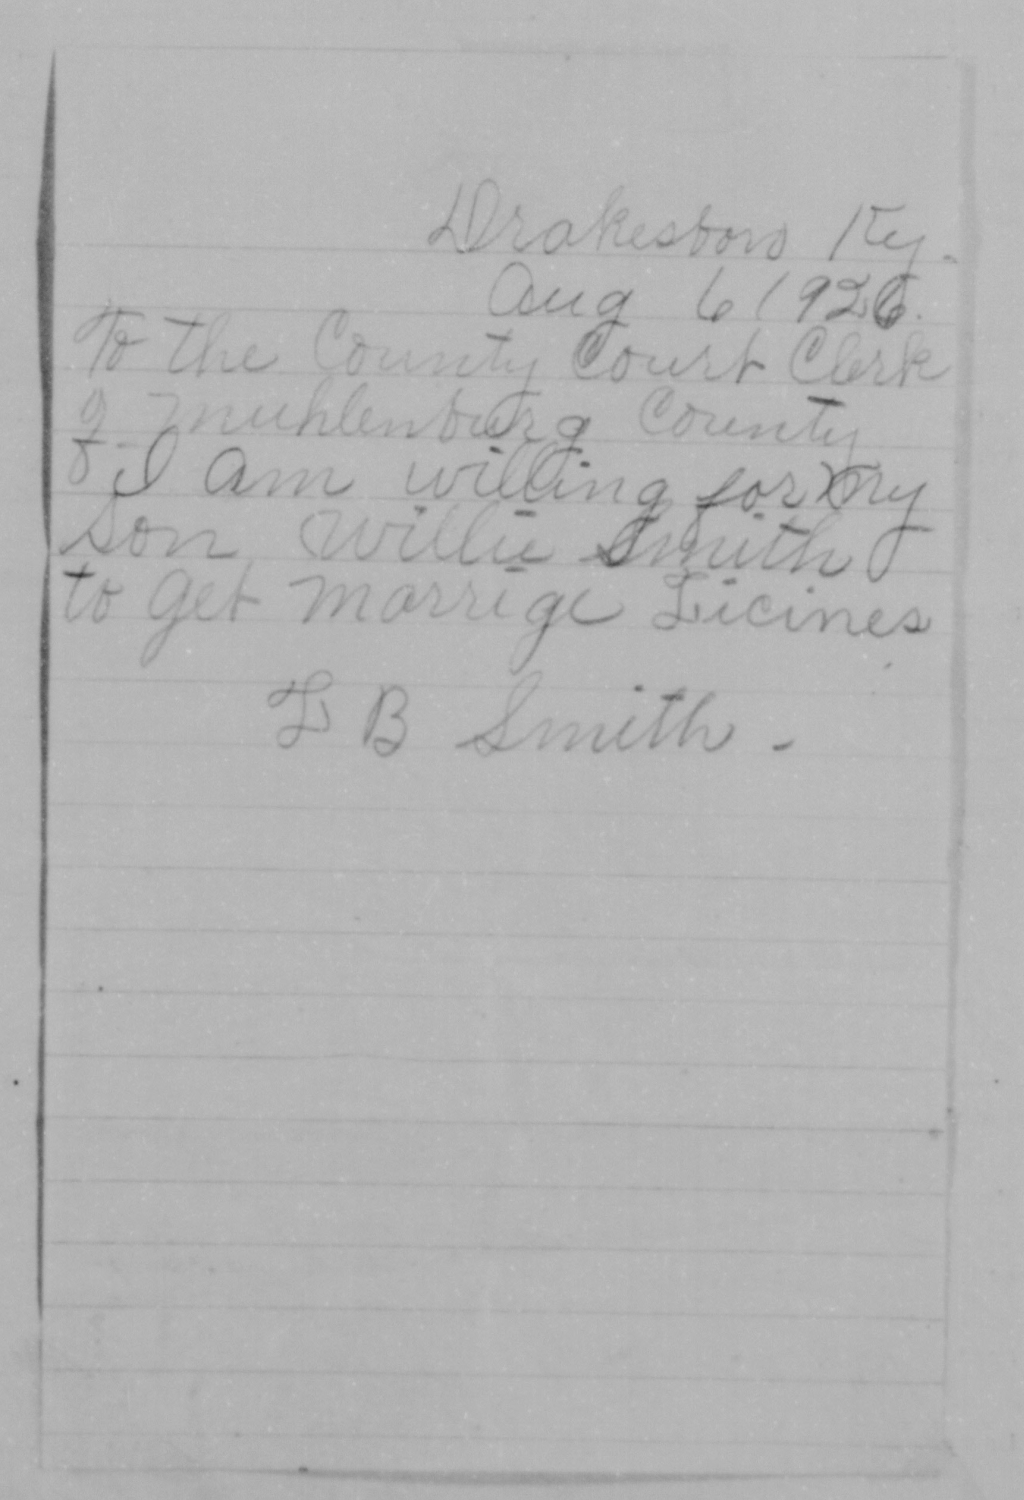 Drakesboro Ky.
Aug 6 1926.
To the County Court Clerk
of Muhlenburg County
I am willing for my
Son Willie Smith
to get marrige Licines
L B Smith.